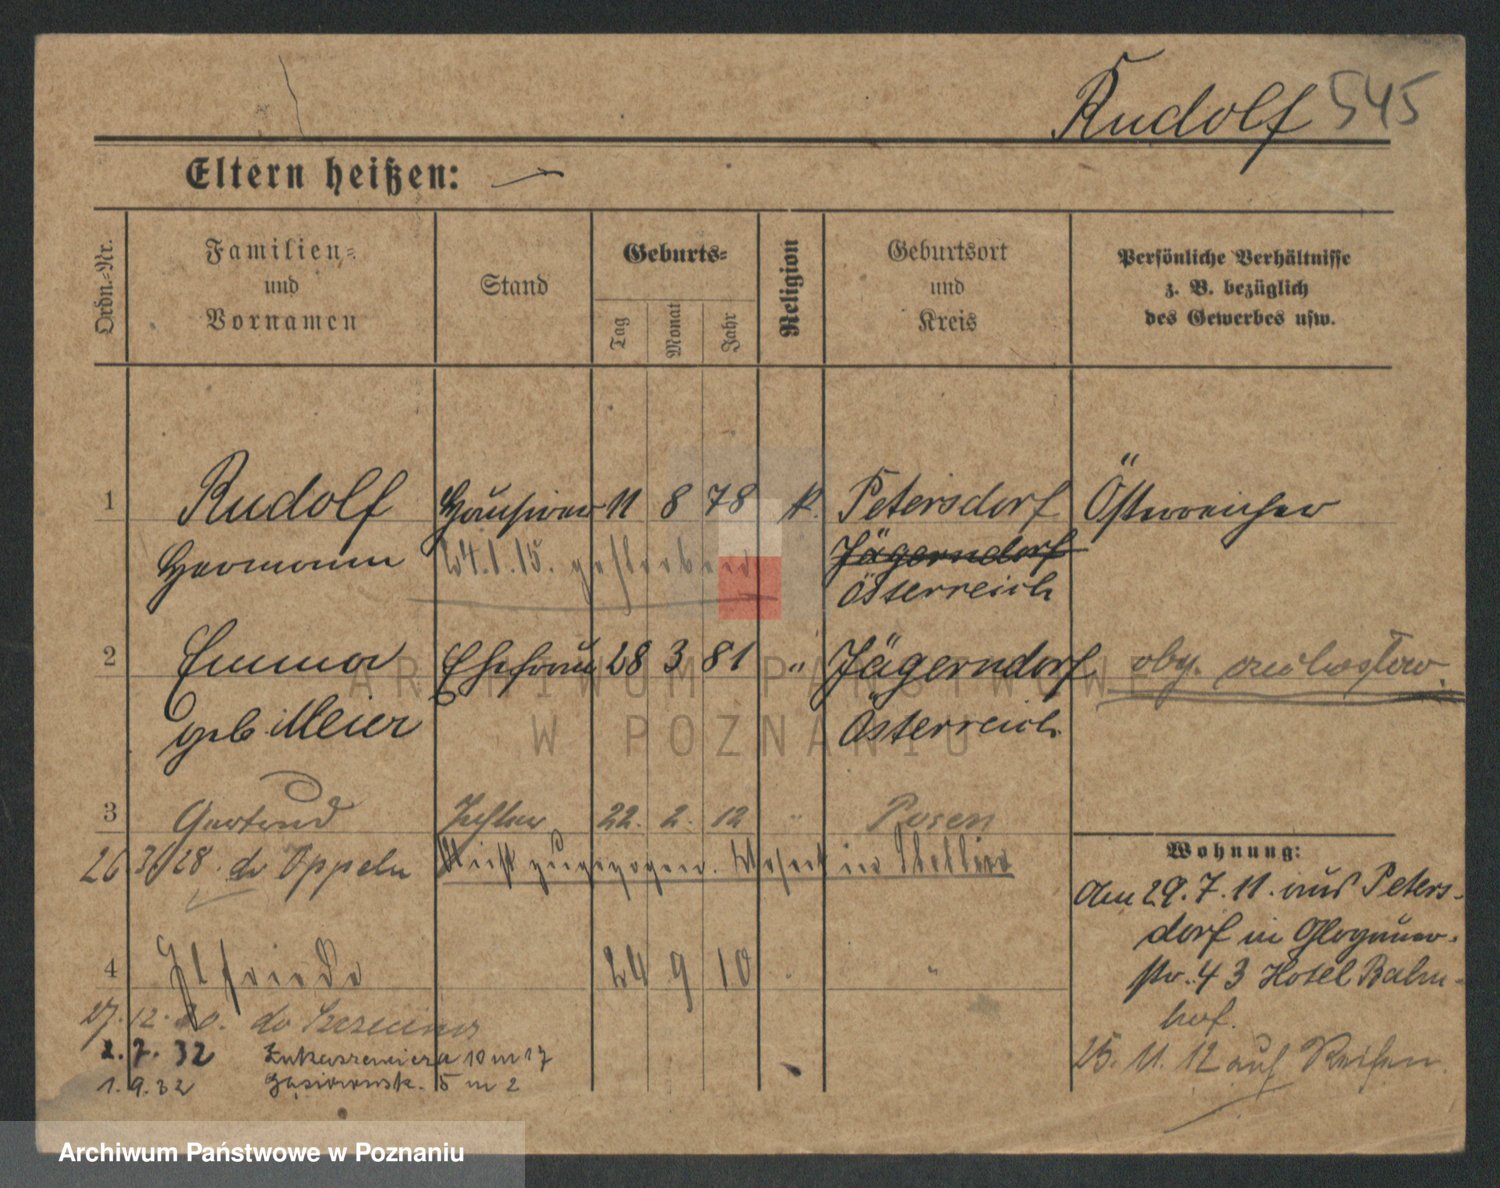 Rudolf 545
Eltern heißen: —
Ordn.-Nr.
Familien-
und
Vornamen
Stand
Geburts-
Tag
Monat
Jahr
Religion
Geburtsort
und
Kreis
Persönliche Verhältnisse
z. B. bezüglich
des Gewerbes usw.
1 Rudolf Hausierer 11 8 78 k. Petersdorf Österreicher
Hermann 24.1.15. gestorben Jägerndorf
Österreich
2 Emma Ehefrau 28 3 81 " Jägerndorf oby.
geb. Meier Österreich
3 Gertrud Tochter 22. 2. 12 " Posen
28. do Oppeln Nicht zugezogen. in Stettin
Wohnung:
Am 29.7.11. aus Peters-
dorf in Glogauer-
str. 43 Hotel Bahn-
hof.
4 Elfriede 24 9 10 " "
27.12.20. do Szczecina
2.7.32 Łukaszewicza 10 m 17
1.9.32 Gąsiorowsk. 5 m 2
25. 11. 12 auf Reisen.
ARCHIWUM PAŃSTWOWE
W POZNANIU
Archiwum Państwowe w Poznaniu